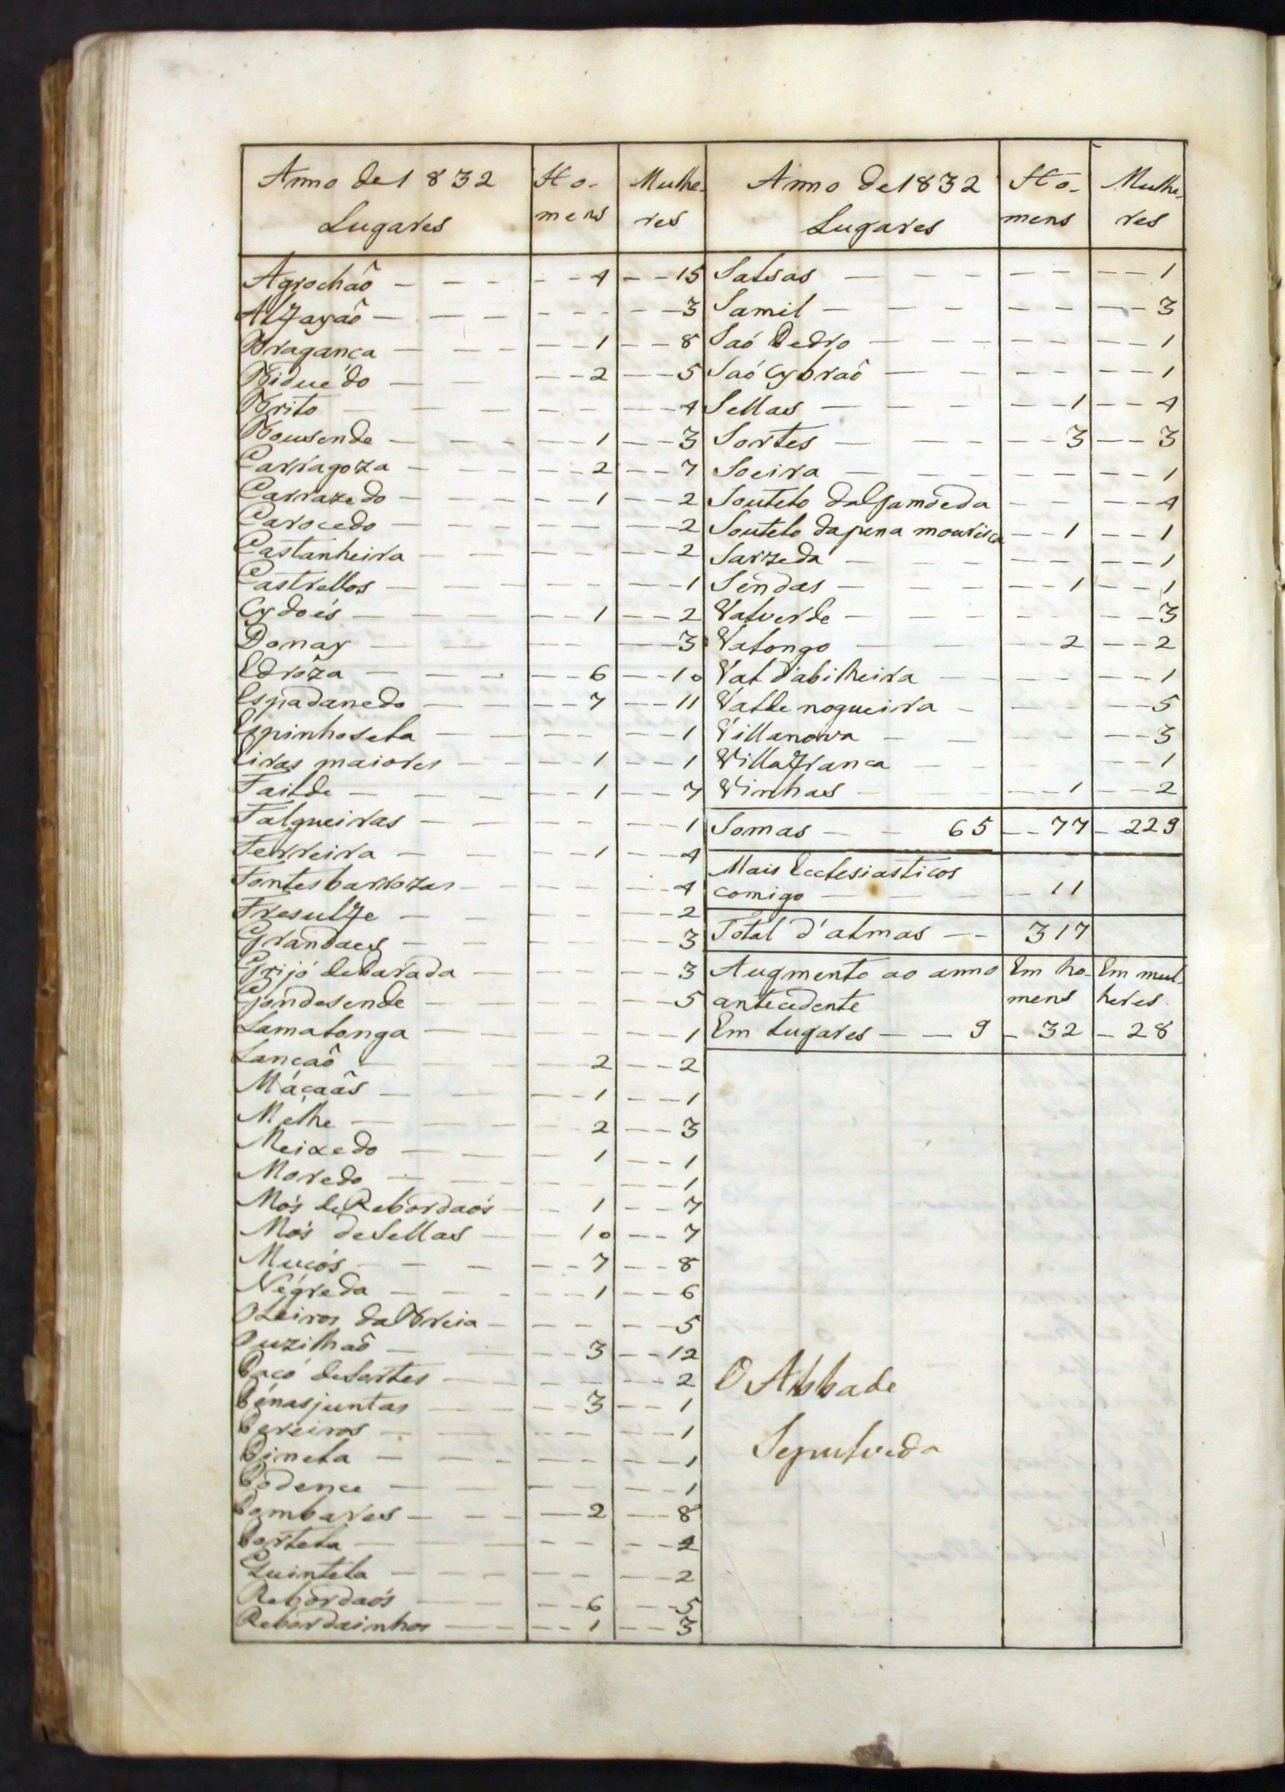 Anno de 1832 Ho- Mulhe-
Lugares mens res
Agrochaõ 4 15
Alfayaõ 3
Bragança 1 8
Biduedo 2 5
Brito 4
Bousende 1 3
Carragoza 2 7
Carrazedo 1 2
Carocedo 2
Castanheira 2
Castrellos 1
Cydoẽs 1 2
Donay 3
Edroza 6 10
Espadanedo 7 11
Espinhosela 1
Eiras maiores 1 1
Failde 1 7
Falgueiras 1
Ferreira 1 4
Fontesbarrozas 4
Fresulfe 2
Grandaes 3
Grijó de Parada 3
Gondesende 5
Lamalonga 1
Lançaõ 2 2
Maçaãs 1 1
Melhe 2 3
Meixedo 1 1
Moredo 1
Mós de Rebordaos 1 7
Mós de Sellas 10 7
Muçós 7 8
Negreda 1 6
Oleiros 5
Ouzilhaõ 3 12
Paçó de Sortes 2
Penasjuntas 3 1
Pereiros 1
Pinela 1
Podence 1
Pombares 2 8
Portela 4
Quintela 2
Rebordaos 6 5
Rebordainhos 1 3
Anno de 1832 Ho- Mulhe-
Lugares mens res
Salsas 1
Samil 3
Saó Pedro 1
Saó Cybraõ 1
Sellas 1 4
Sortes 3 3
Soeira 1
Soutelo dalgamoeda 4
Soutelo da pena mourisca 1 1
Sarzeda 1
Sendas 1 1
Valverde 3
Valongo 2 2
Val d'abilheira 1
Val de nogueira 5
Villanova 3
Villafranca 1
Vinhas 1 2
Somas 65 77 229
Mais Ecclesiasticos
comigo 11
Total d'almas 317
Augmento ao anno Em ho- Em mul-
antecedente mens heres
Em lugares 9 32 28
O Abbade
Sepulveda